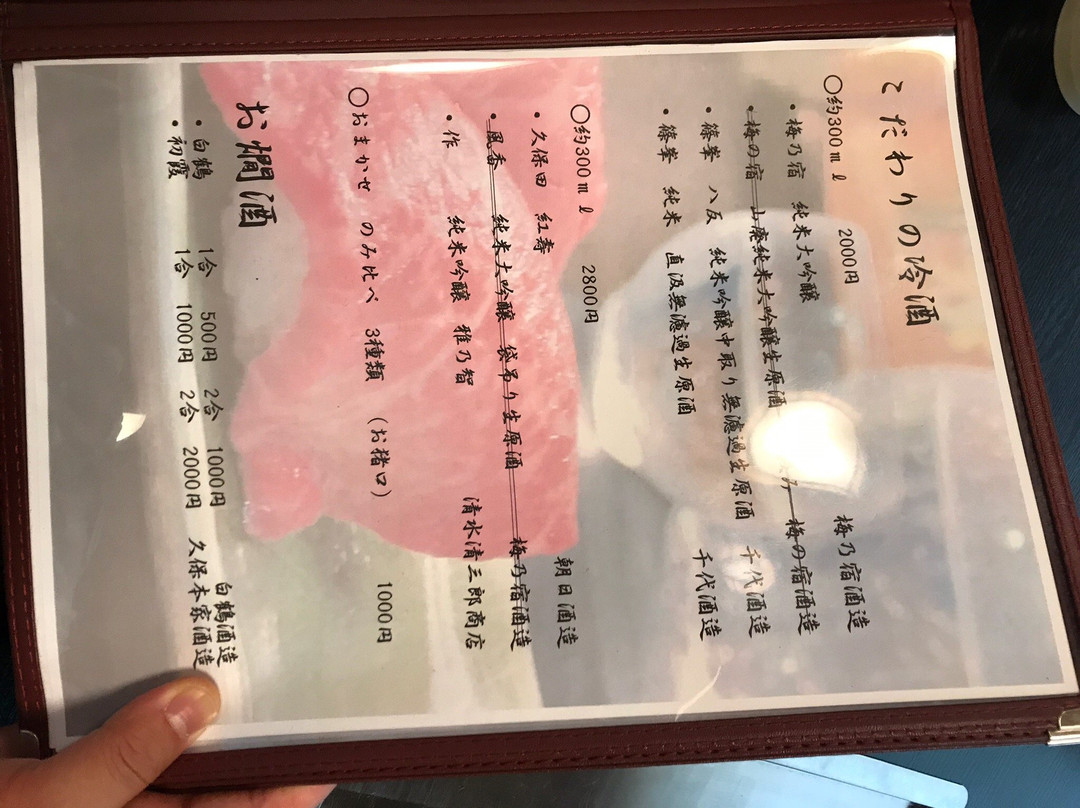 こだわりの冷酒
○約300ml 2000円
・梅乃宿 純米大吟醸 梅乃宿酒造
・梅の宿 山廃純米大吟醸生原酒 み 梅の宿酒造
・篠峯 八反 純米吟醸中取り無濾過生原酒 千代酒造
・篠峯 純米 直汲無濾過生原酒 千代酒造
○約300ml 2800円
・久保田 紅寿 朝日酒造
・風香 純米大吟醸 袋吊り生原酒 梅乃宿酒造
・作 純米吟醸 雅乃智 清水清三郎商店
○おまかせ のみ比べ 3種類 (お猪口) 1000円
お燗酒
・白鶴 1合 500円 2合 1000円 白鶴酒造
・初霞 1合 1000円 2合 2000円 久保本家酒造